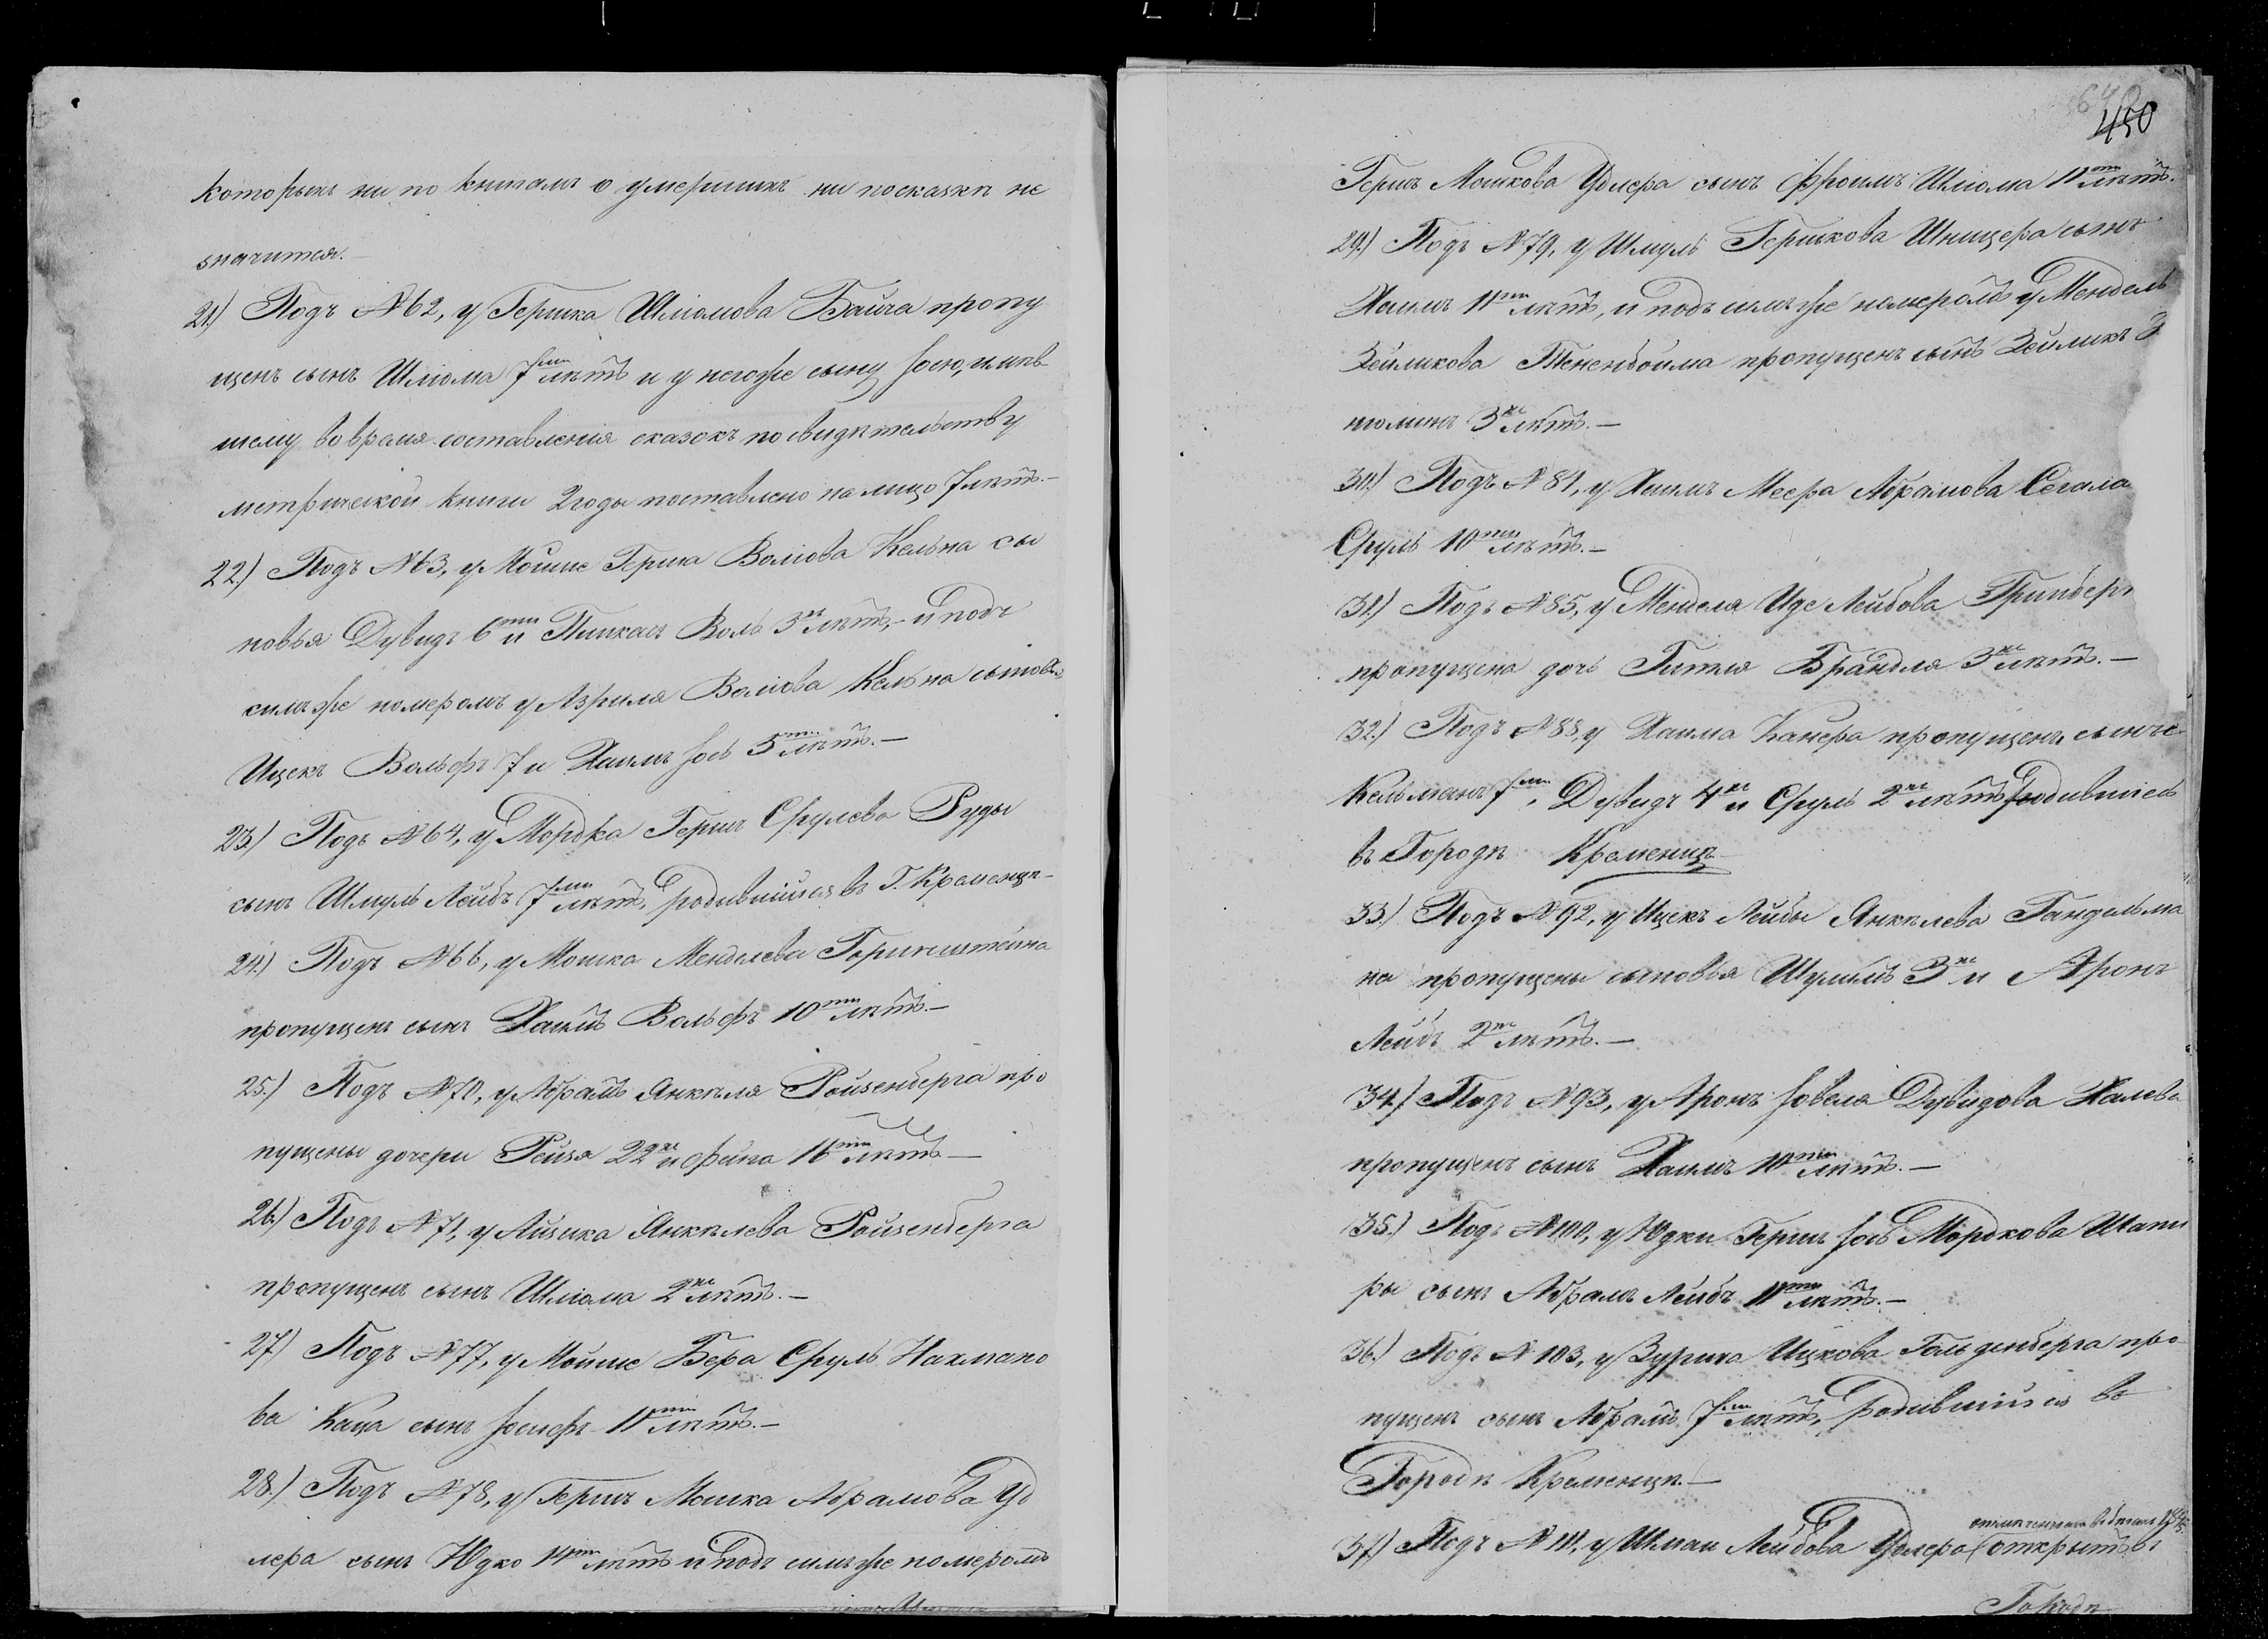 которыхъ ни по книгамъ о умершихъ ни посказкѣ не
значится.—
21.) Подъ №62, у Гершка Шліомова Байча пропу
щенъ сынъ Шліома 7ми лѣтъ и у негоже сыну Іосю, имѣв
шему во время составленія сказокъ по свидѣтельству
метрической книги 2 годы поставлено на лицо 7 лѣтъ.—
22.) Подъ №63, у Мойше Герша Волюва Кельна сы
новья Дувидъ 6ти и Пинхасъ Воль 3хъ лѣтъ,— и подъ
симъ же номеромъ у Азриля Волюва Кельна сыновья
Ицекъ Вольфъ 7 и Хаимъ Іось 5ти лѣтъ.—
23.) Подъ №64, у Мордка Гершъ Срулева Руды
сынъ Шмуль Лейбъ 7ми лѣтъ, родившійся въ Г. Кременцѣ—
24.) Подъ №66, у Мошка Менделева Горинштейна
пропущенъ сынъ Хаимъ Вольфъ 10ти лѣтъ.—
25.) Подъ №70, у Абрамъ Янкеля Ройзенберга про
пущены дочери Рейзя 22хъ и Фейга 16ти лѣтъ—
26.) Подъ №71, у Айзика Янкелева Ройзенберга
пропущенъ сынъ Шліома 2хъ лѣтъ.—
27.) Подъ №77, у Мойше Бера Сруль Нахмано
ва Каца сынъ Іосифъ 11ти лѣтъ.—
28.) Подъ №78, у Гершъ Мошка Абрамова Уд
лера сынъ Юдко 14ти лѣтъ и подъ симъ же номеромъ
450
Гершъ Мошкова Удлера сынъ Фроимъ Шліома 11ти лѣтъ.
29.) Подъ №79, у Шмуль Гершкова Шницера сынъ
Хаимъ 11ти лѣтъ, и подъ симъ же номеромъ у Мендель
Зейликова Тененбойма пропущенъ сынъ Зейликъ
3хъ лѣтъ.—
30.) Подъ №81, у Хаимъ Меера Абрамова Сегала
Сруль 10ти лѣтъ.—
31.) Подъ №85, у Менделя Иде Лейбова Гринберг
пропущена дочь Гитля Брандля 3хъ лѣтъ.—
32.) Подъ №88, у Хаима Канера пропущены сынъ
Кельманъ 7ми, Дувидъ 4хъ и Сруль 2хъ лѣтъ родившіесь
въ Городѣ Кременцѣ
33.) Подъ №92, у Ицекъ Лейбы Янкелева Гандельма
на пропущены сыновья Шулимъ 3хъ и Аронъ
Лейбъ 2хъ лѣтъ.—
34.) Подъ №93, у Аронъ Іовеля Дувидова Халева
пропущенъ сынъ Хаимъ 10ти лѣтъ.—
35.) Подъ №100, у Юдки Гершъ Іось Мордкова Шапи
ры сынъ Абрамъ Лейбъ 11ти лѣтъ.—
36.) Подъ №103, у Зуриха Ицкова Гольденберга про
пущенъ сынъ Абрамъ 7ми лѣтъ, родившійся въ
Городѣ Кременцѣ.—
37.) Подъ №111, у Шмаи Лейбова Удлера (открытъ въ
Городѣ